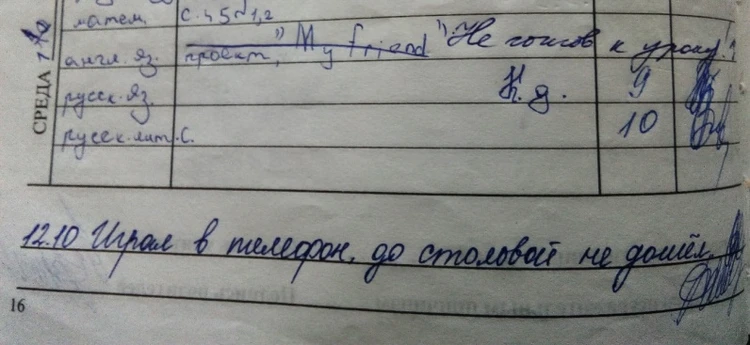 матем. с. 45 №1,2
англ. яз. проект „My friend" Не готов к уроку!
русск. яз. К.д. 9
русск. лит. С. 10
СРЕДА
12.10 Играл в телефон, до столовой не дошёл.
16